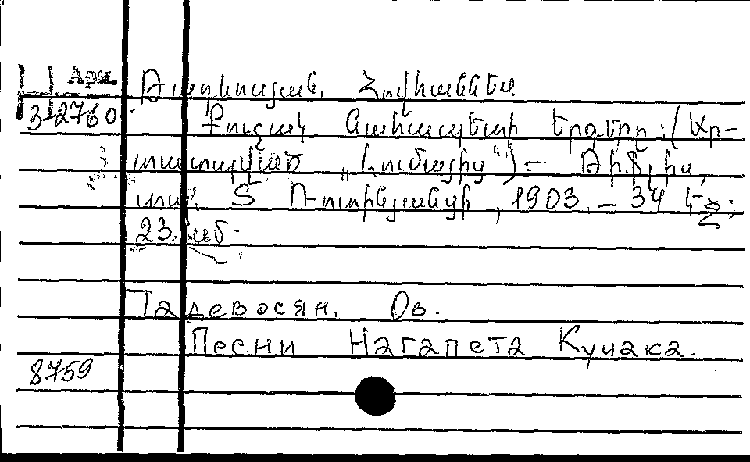 Арм
3-2760
Թադևոսյան, Հովհաննես
Քուչակ Նահապետի երգերը: (Ար-
տատպված „Լումայից“) – Թիֆլիս,
տպ. Տ. Ռոտինյանցի, 1903. – 34 էջ;
23 սմ.
Тадевосян, Ов.
Песни Нагапета Кучака.
8759